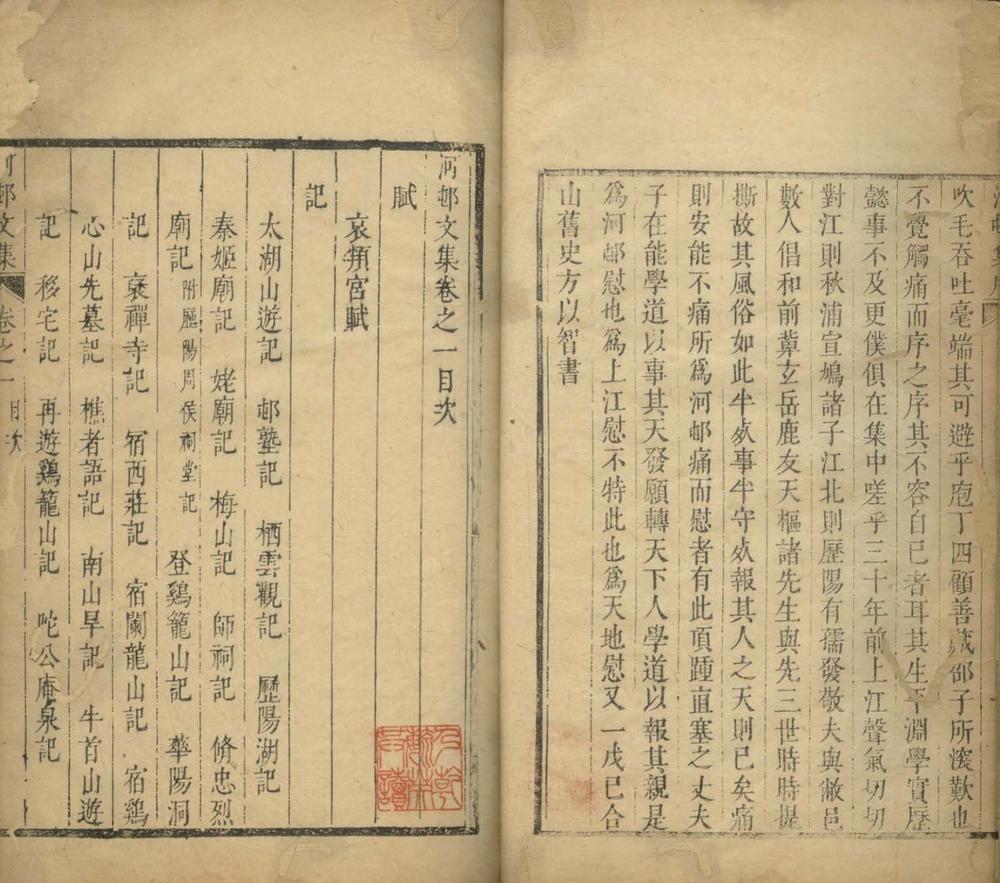 吹毛吞吐毫端其可避乎庖丁四顧善藏邵子所深歎也
不覺觸痛而序之序其不容自已者耳其生平淵學實歷
懿事不及更僕俱在集中嗟乎三十年前上江聲氣切切
對江則秋浦宣鳩諸子江北則歷陽有孺發敬夫與敝邑
數人倡和前軰玄岳鹿友天樞諸先生與先三世時時提
撕故其風俗如此半烖事半守烖報其人之天則已矣痛
則安能不痛所爲河邨痛而慰者有此頂踵直塞之丈夫
子在能學道以事其天發願轉天下人學道以報其親是
爲河邨慰也爲上江慰不特此也爲天地慰又一戊巳合
山舊史方以智書
河邨文集卷之一目次
賦
哀頖宮賦
記
太湖山遊記 邨塾記 栖雲觀記 歷陽湖記
秦姬廟記 姥廟記 梅山記 師祠記 脩忠烈
廟記 附歷陽周侯祠堂記 登鷄籠山記 華陽洞
記 襃禪寺記 宿西莊記 宿闌龍山記 宿鷄
心山先墓記 樵者語記 南山旱記 牛首山遊
記 移宅記 再遊鷄籠山記 咜公庵泉記
河邨文集 卷之一 目次